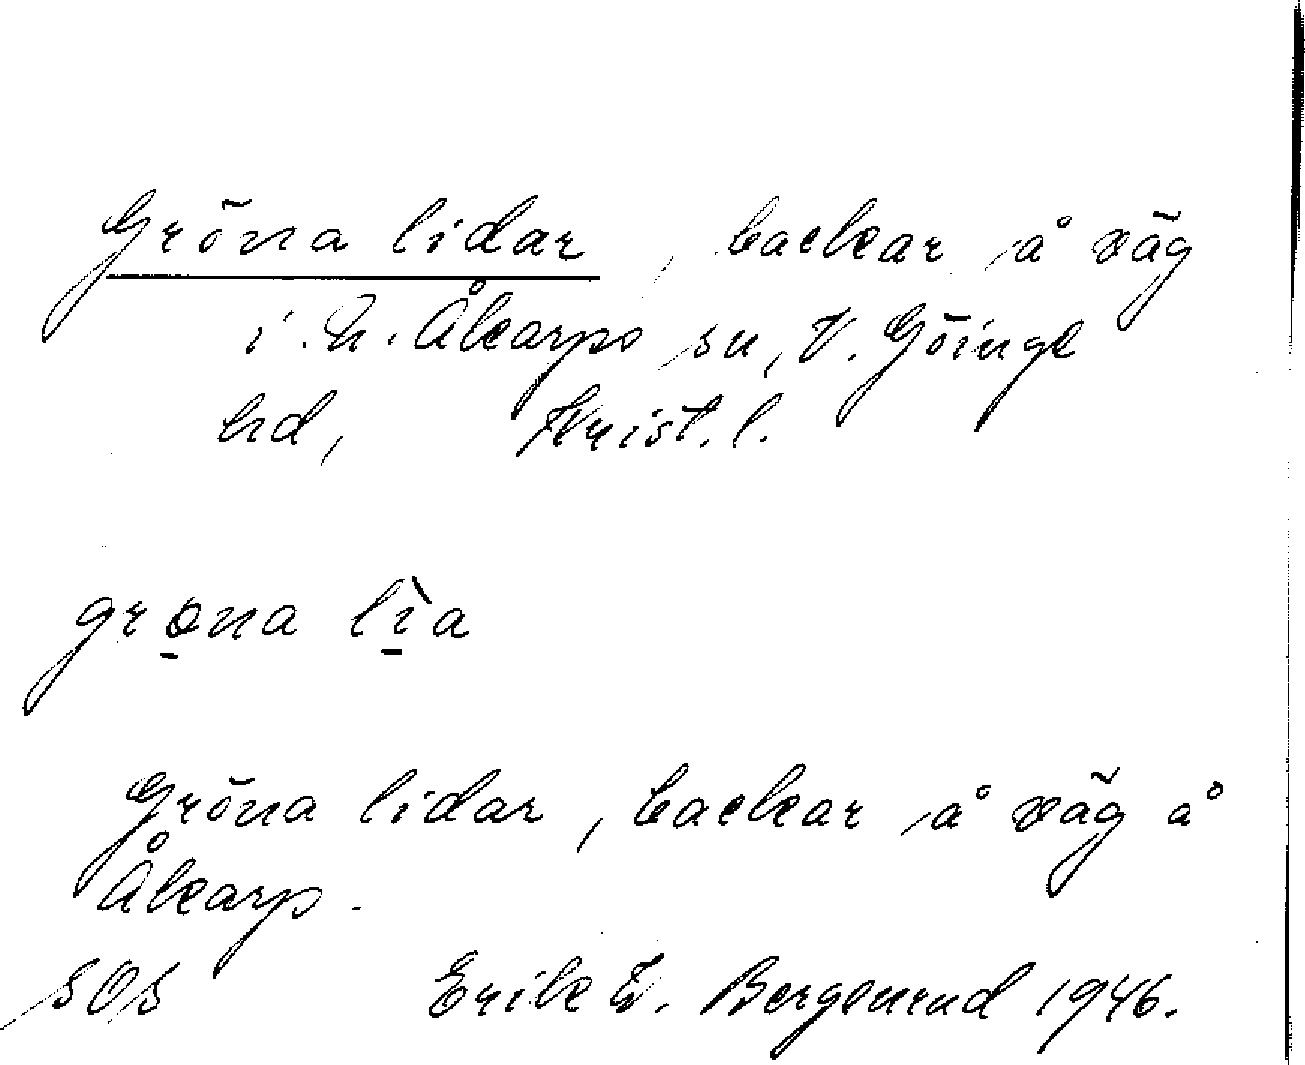 Gröna lidar, backar å väg
i N. Åkarps sn, V. Göinge
hd, Krist. l.
grøna lìa
Gröna lidar, backar å väg å
Åkarp.
SOS Erik W. Bergenrud 1946.